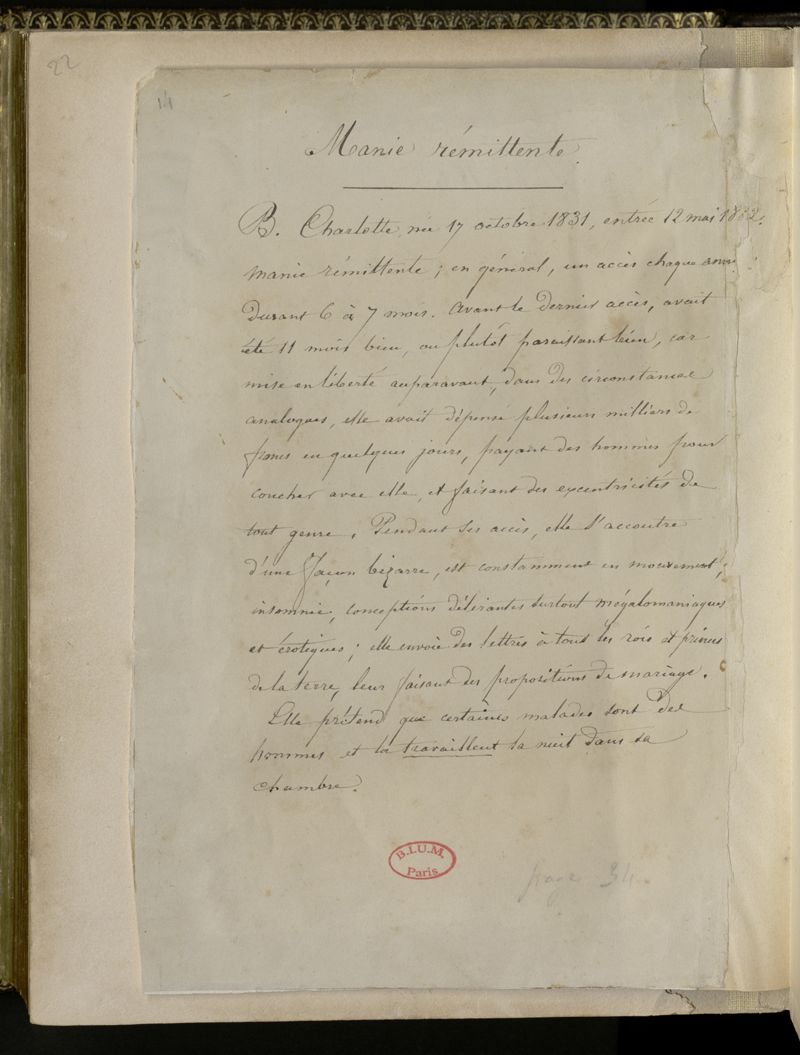 22
14
Manie rémittente.
B. Charlotte, née 17 octobre 1831, entrée 12 mai 1882.
manie rémittente ; en général, un accès chaque année
durant 6 à 7 mois. Avant le dernier accès, avait
été 11 mois bien, ou plutôt paraissant bien, car
mise en liberté auparavant, dans des circonstances
analogues, elle avait dépensé plusieurs milliers de
francs en quelques jours, payant des hommes pour
coucher avec elle, et faisant des excentricités de
tout genre. Pendant ses accès, elle s'accoutre
d'une façon bizarre, est constamment en mouvement ;
insomnie, conceptions délirantes surtout mégalomaniaques
et érotiques ; elle envoie des lettres à tous les rois et princes
de la terre, leur faisant des propositions de mariage.
Elle prétend que certaines malades sont des
hommes et la travaillent la nuit dans sa
chambre.
B.I.U.M.
Paris
page 34